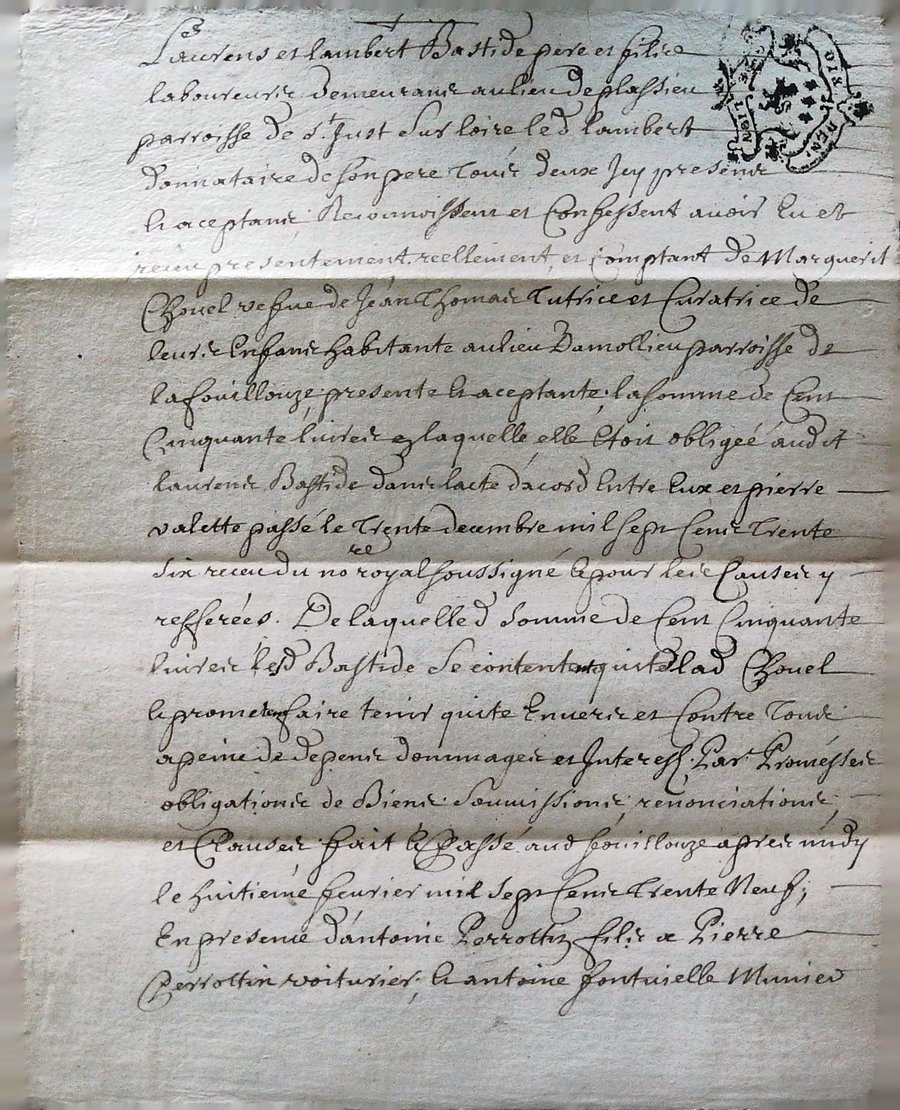 Laurens et lambert Bastide pere et filie
laboureurs demeurans au lieu de plassieu
parroisse de St Just sur loire led lambert
donnataire de son pere tous deux Icy presens
et aceptans, Reconnoissent et Confessent avoir Eu et
receu presentement reellement et comptant de Marguerit
Chovel vefve de Jean Thomas Tutrice et Curatrice de
leurs Enfans habitante au lieu Damollieu parroisse de
lafouillouze presente et aceptante, la somme de Cent
Cinquante livres laquelle elle Etoit obligeé audit
laurens Bastide dans lacte dacord Entre Eux et pierre
valette passé le Trente decembre mil sept Cens Trente
six receu du nore royal soussigné et pour les Causes y
refferées. De laquelle d somme de Cent Cinquante
livres lesd Bastide se contentent quite lad Chovel
et prometent faire tenir quite Envers et Contre Tous
a peine de depens dommages et Interest. Par Promesses
obligations de Biens soumissions, renonciations,
et Clauses fait et Passé aud feouillouze apres midy
le huitieme fevrier mil sept Cens Trente Neuf;
En presence d'antoine Perrottin fils a Pierre
Perrottin voiturier, et antoine fontvielle Munier